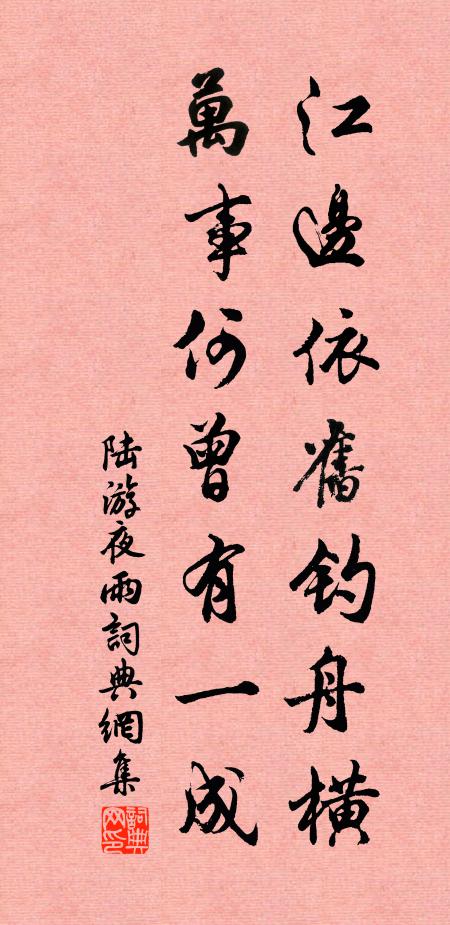 江邊依舊釣舟橫
萬事何曾有一成
陸游夜雨詞典網集
詞典網印